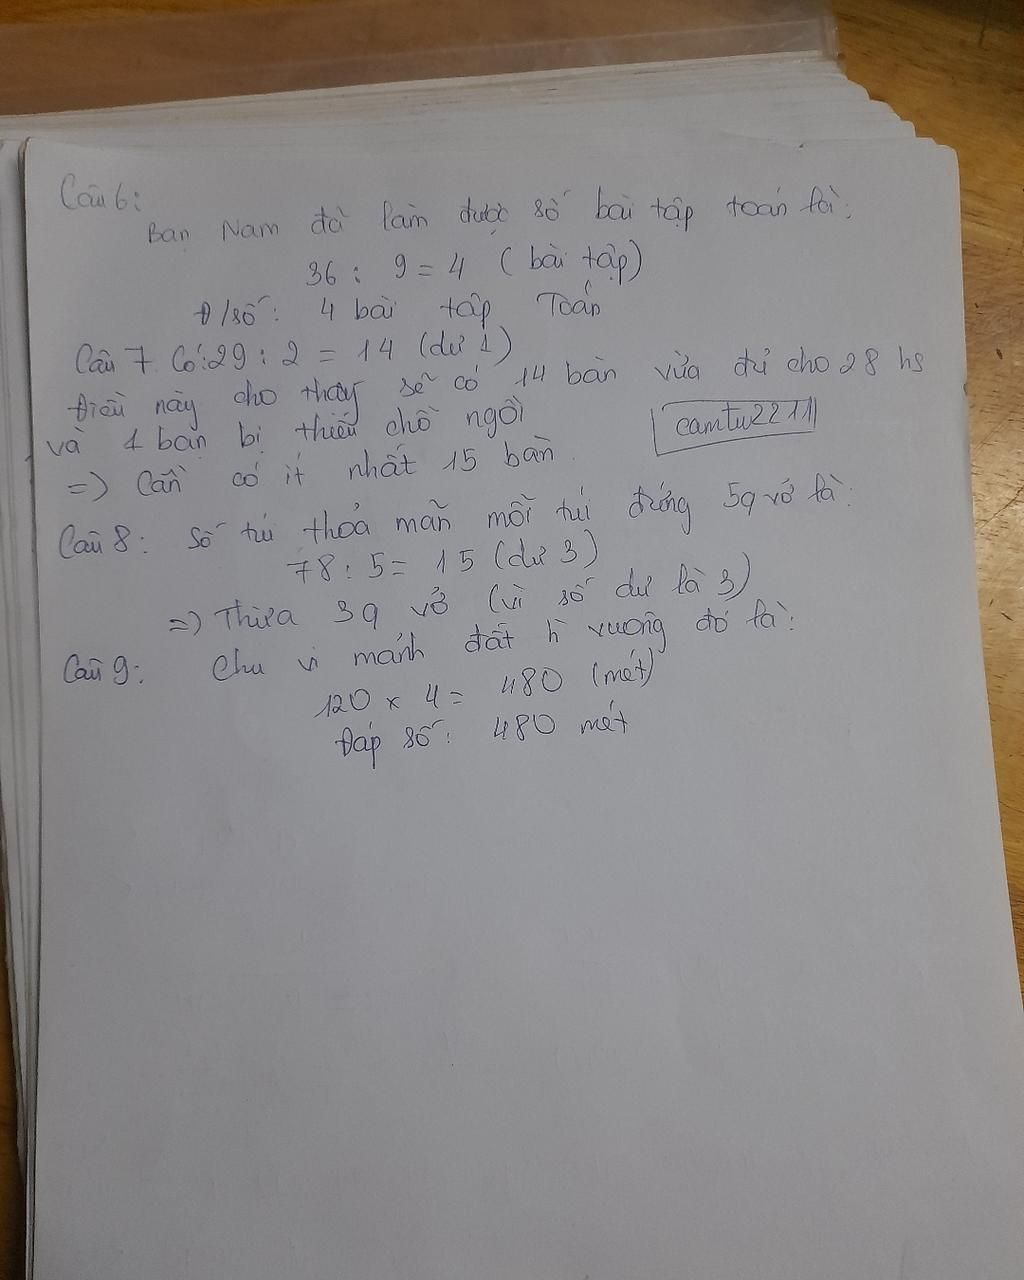 Câu 6:
Bạn Nam đã làm được số bài tập toán là:
36 : 9 = 4 (bài tập)
Đ/số: 4 bài tập Toán
Câu 7. Có: 29 : 2 = 14 (dư 1)
Điều này cho thấy sẽ có 14 bàn vừa đủ cho 28 hs
và 1 bạn bị thiếu chỗ ngồi
camtu2211
=> Cần có ít nhất 15 bàn.
Câu 8: Số túi thoả mãn mỗi túi đựng 5q vở là:
78 : 5 = 15 (dư 3)
=> Thừa 3q vở (vì số dư là 3)
Câu 9: Chu vi mảnh đất h vuông đó là:
120 x 4 = 480 (mét)
Đáp số: 480 mét